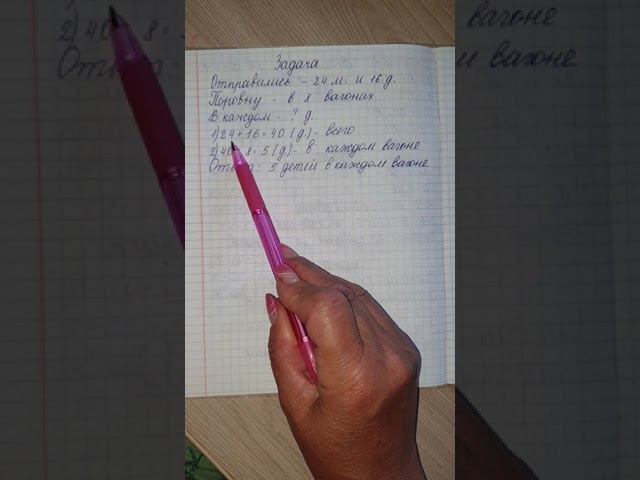 Задача
Отправились - 24 м. и 16 д.
Поровну - в 8 вагонах
В каждом - ? д.
1) 24 + 16 = 40 (д) - всего
2) 40 8 = 5 (д) - в каждом вагоне
5 детей в каждом вагоне